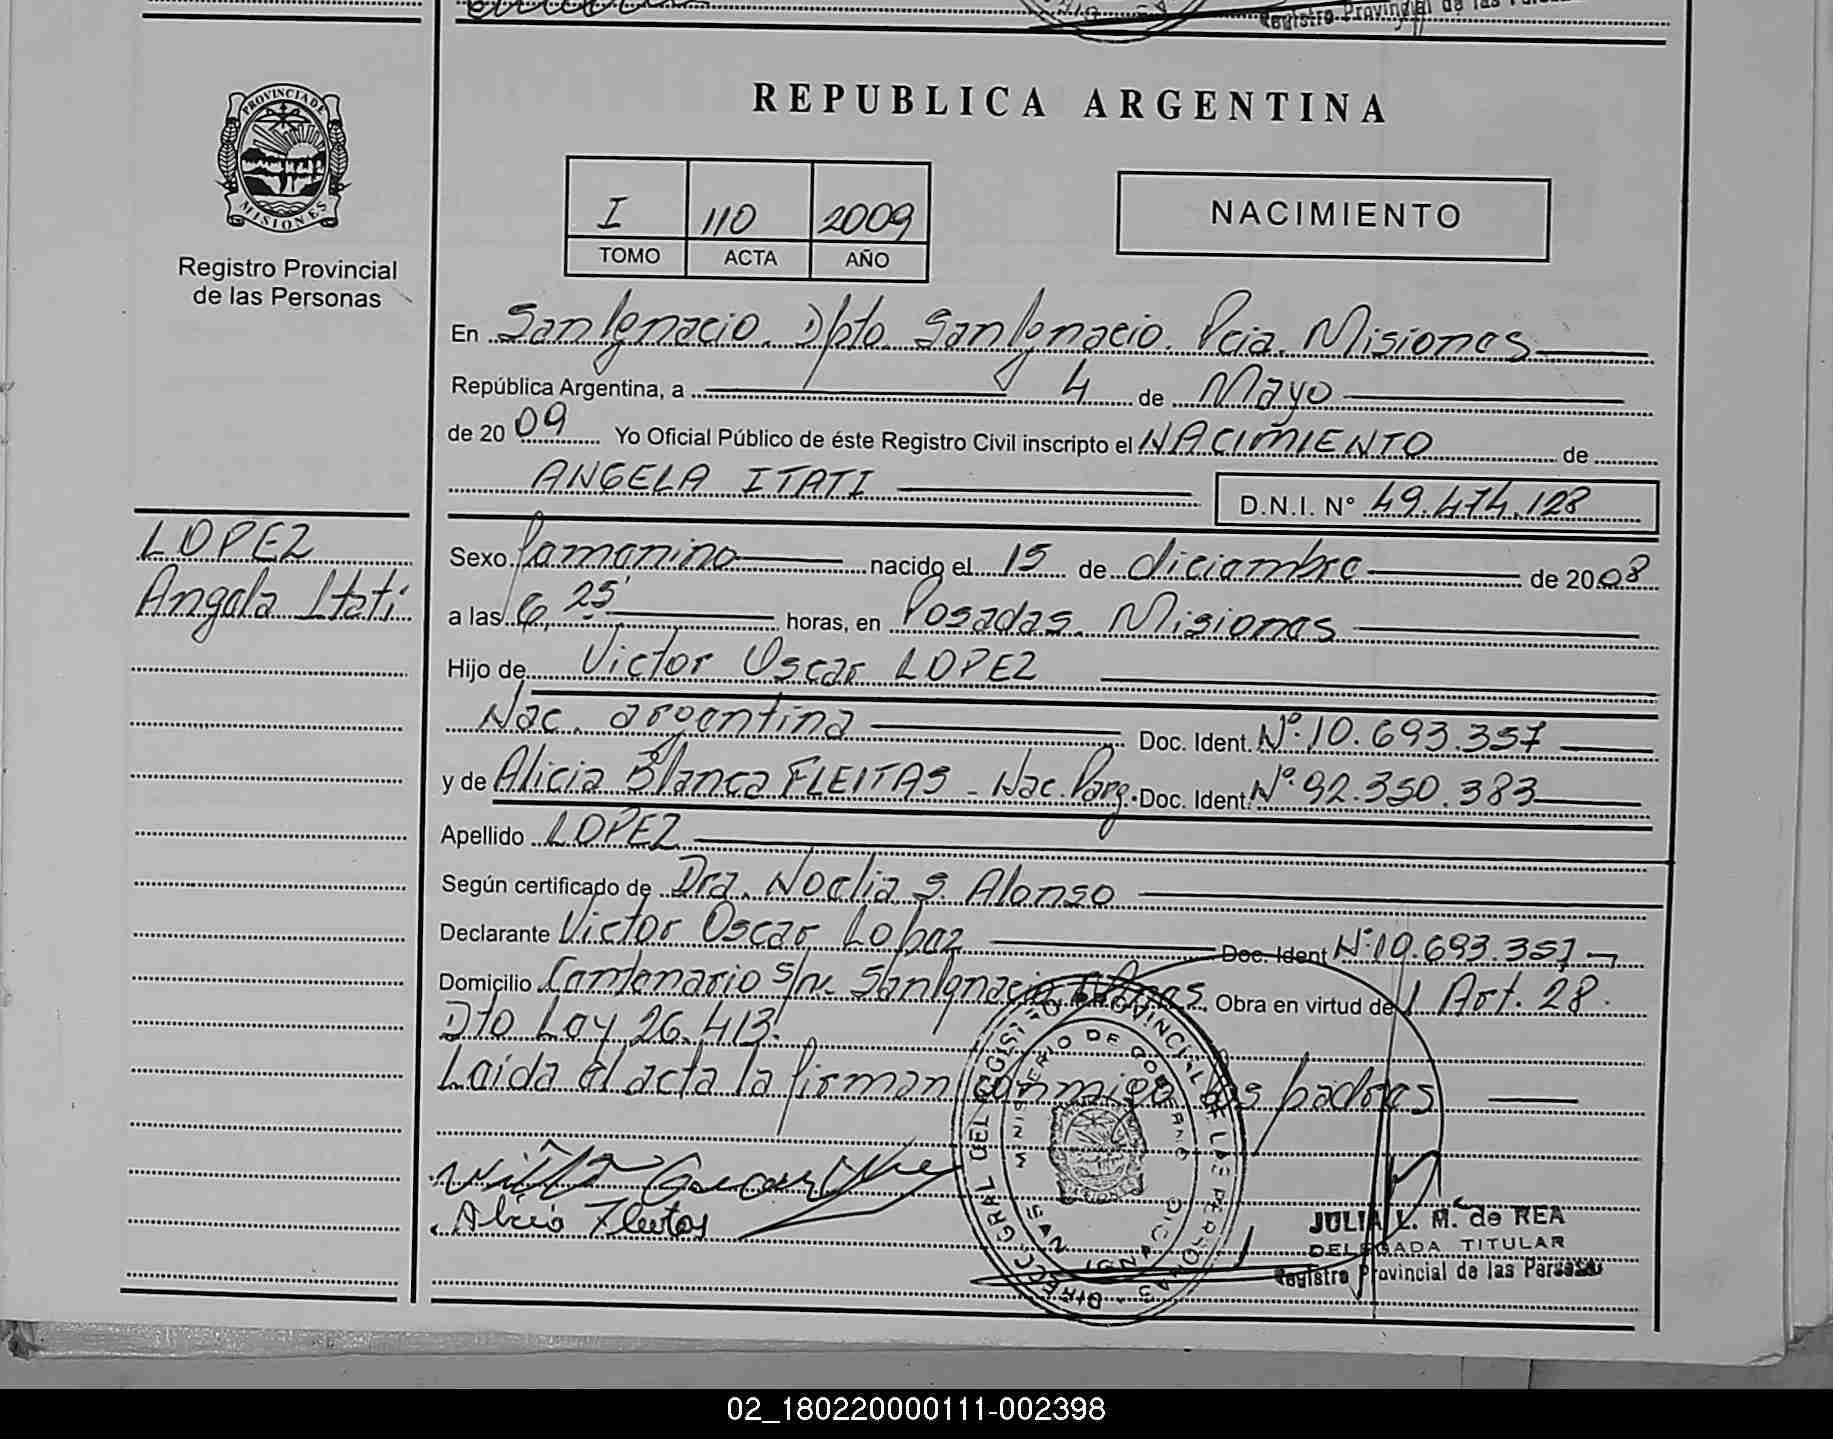 Registro Provincial de las
REPUBLICA ARGENTINA
PROVINCIA DE
MISIONES
Registro Provincial
de las Personas
I 110 2009
TOMO ACTA AÑO
NACIMIENTO
En San Ignacio. Dpto San Ignacio. Pcia. Misiones
República Argentina, a 4 de Mayo
de 2009 Yo Oficial Público de éste Registro Civil inscripto el NACIMIENTO de
ANGELA ITATI D.N.I. N° 49.474.128
LOPEZ
Angela Itati
Sexo femenino nacido el 15 de diciembre de 2008
a las 6,25' horas, en Posadas. Misiones
Hijo de Victor Oscar LOPEZ
Nac. argentina Doc. Ident. N°. 10.693.357
y de Alicia Blanca FLEITAS - Nac. Parg. Doc. Ident. N°. 92.350.383
Apellido LOPEZ
Según certificado de Dra. Noelia S. Alonso
Declarante Victor Oscar Lopez Doc. Ident N° 10.693.357
Domicilio Centenario s/n. San Ignacio Obra en virtud del Art. 28.
Dto Ley 26.413.
Leida el acta la firman conmigo los padres
Alicia Fleitas
DIRECC. GRAL DEL REGISTRO PROVINCIAL DE LAS PERSONAS
MINISTERIO DE GOBIERNO
SAN IGNACIO
JULIA L. M. de REA
DELEGADA TITULAR
Registro Provincial de las Personas
02_180220000111-002398